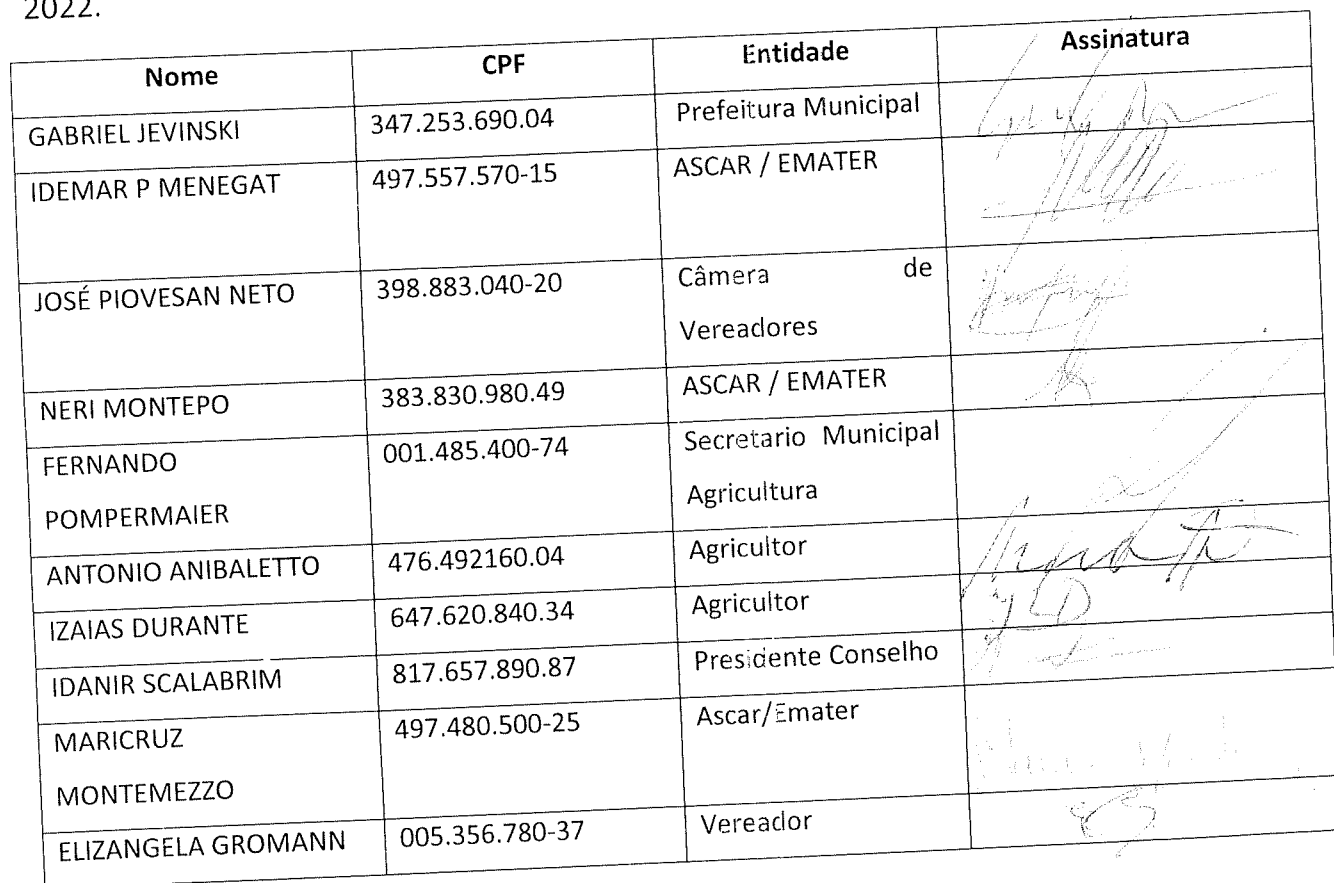 2022.
Nome CPF Entidade Assinatura
GABRIEL JEVINSKI 347.253.690.04 Prefeitura Municipal
IDEMAR P MENEGAT 497.557.570-15 ASCAR / EMATER
JOSÉ PIOVESAN NETO 398.883.040-20 Câmera de
Vereadores
NERI MONTEPO 383.830.980.49 ASCAR / EMATER
FERNANDO 001.485.400-74 Secretario Municipal
POMPERMAIER Agricultura
ANTONIO ANIBALETTO 476.492160.04 Agricultor
IZAIAS DURANTE 647.620.840.34 Agricultor
IDANIR SCALABRIM 817.657.890.87 Presidente Conselho
MARICRUZ 497.480.500-25 Ascar/Emater
MONTEMEZZO
ELIZANGELA GROMANN 005.356.780-37 Vereador